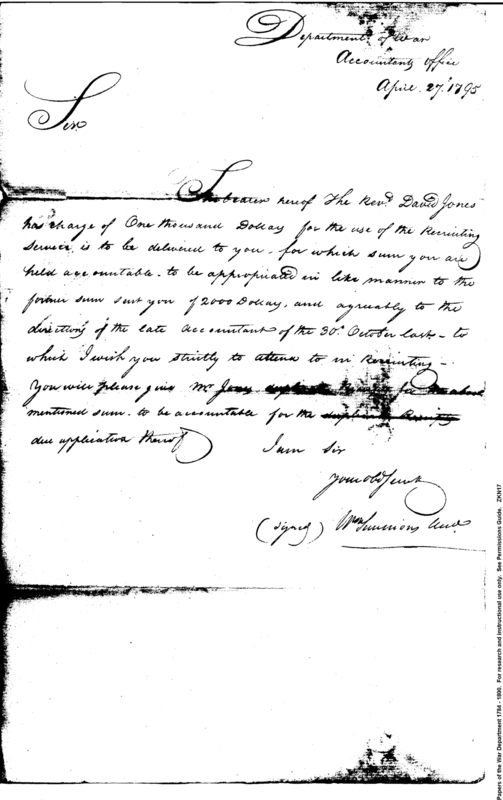 Department of War
Accountants Office
April 27th 1795
Sir
The bearer hereof The Revd David Jones
has charge of One thousand Dollars for the use of the Recruiting
Service is to be delivered to you - for which sum you are
held accountable - to be appropriated in like manner to the
former sum sent you of 2000 Dollars, and agreeably to the
directions of the late Accountant of the 30th October last - to
which I wish you strictly to attend to in Recruiting -
You will please give Mr Jones duplicate for the above
mentioned sum - to be accountable for the
due application thereof
I am Sir
your obd Servt
(signed) Wm Simmons Acct.
Papers of the War Department 1784 - 1800. For research and instructional use only. See Permissions Guide. ZKN17